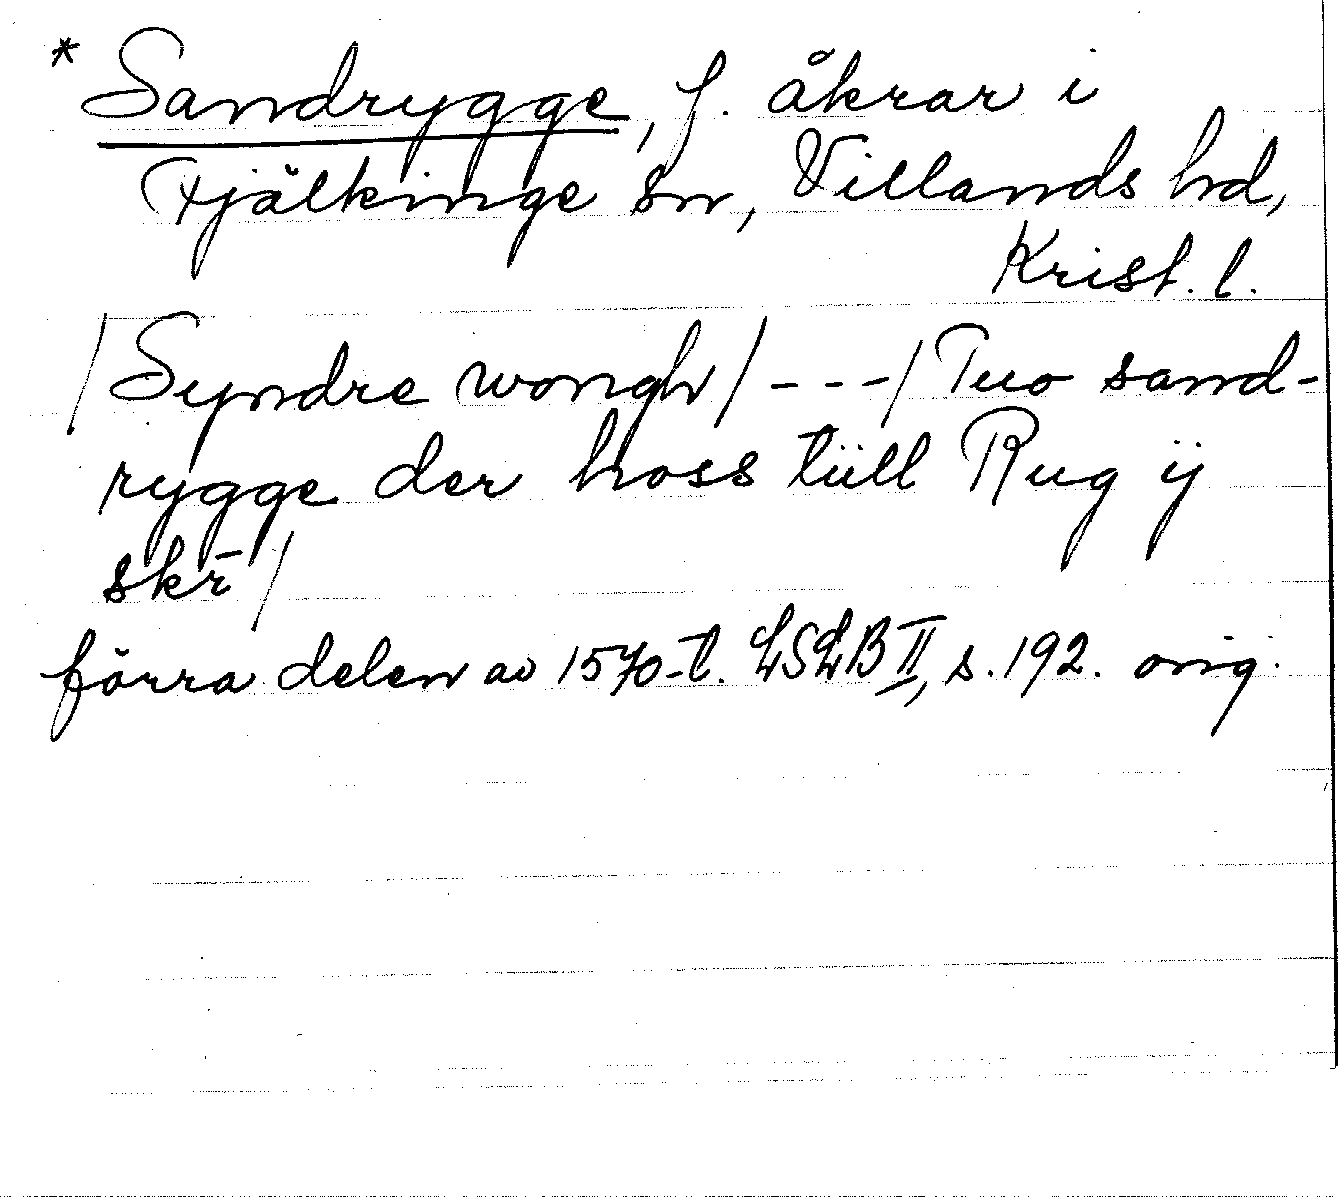 * Sandrygge, f. åkrar i
Fjälkinge sn, Villands hd,
Krist. l.
/Syndre wongh/ - - - / Tuo sand-
rygge der hoss tüll Rug ij
skr̄/
förra delen av 1570-t. LSLB II, s. 192. orig.